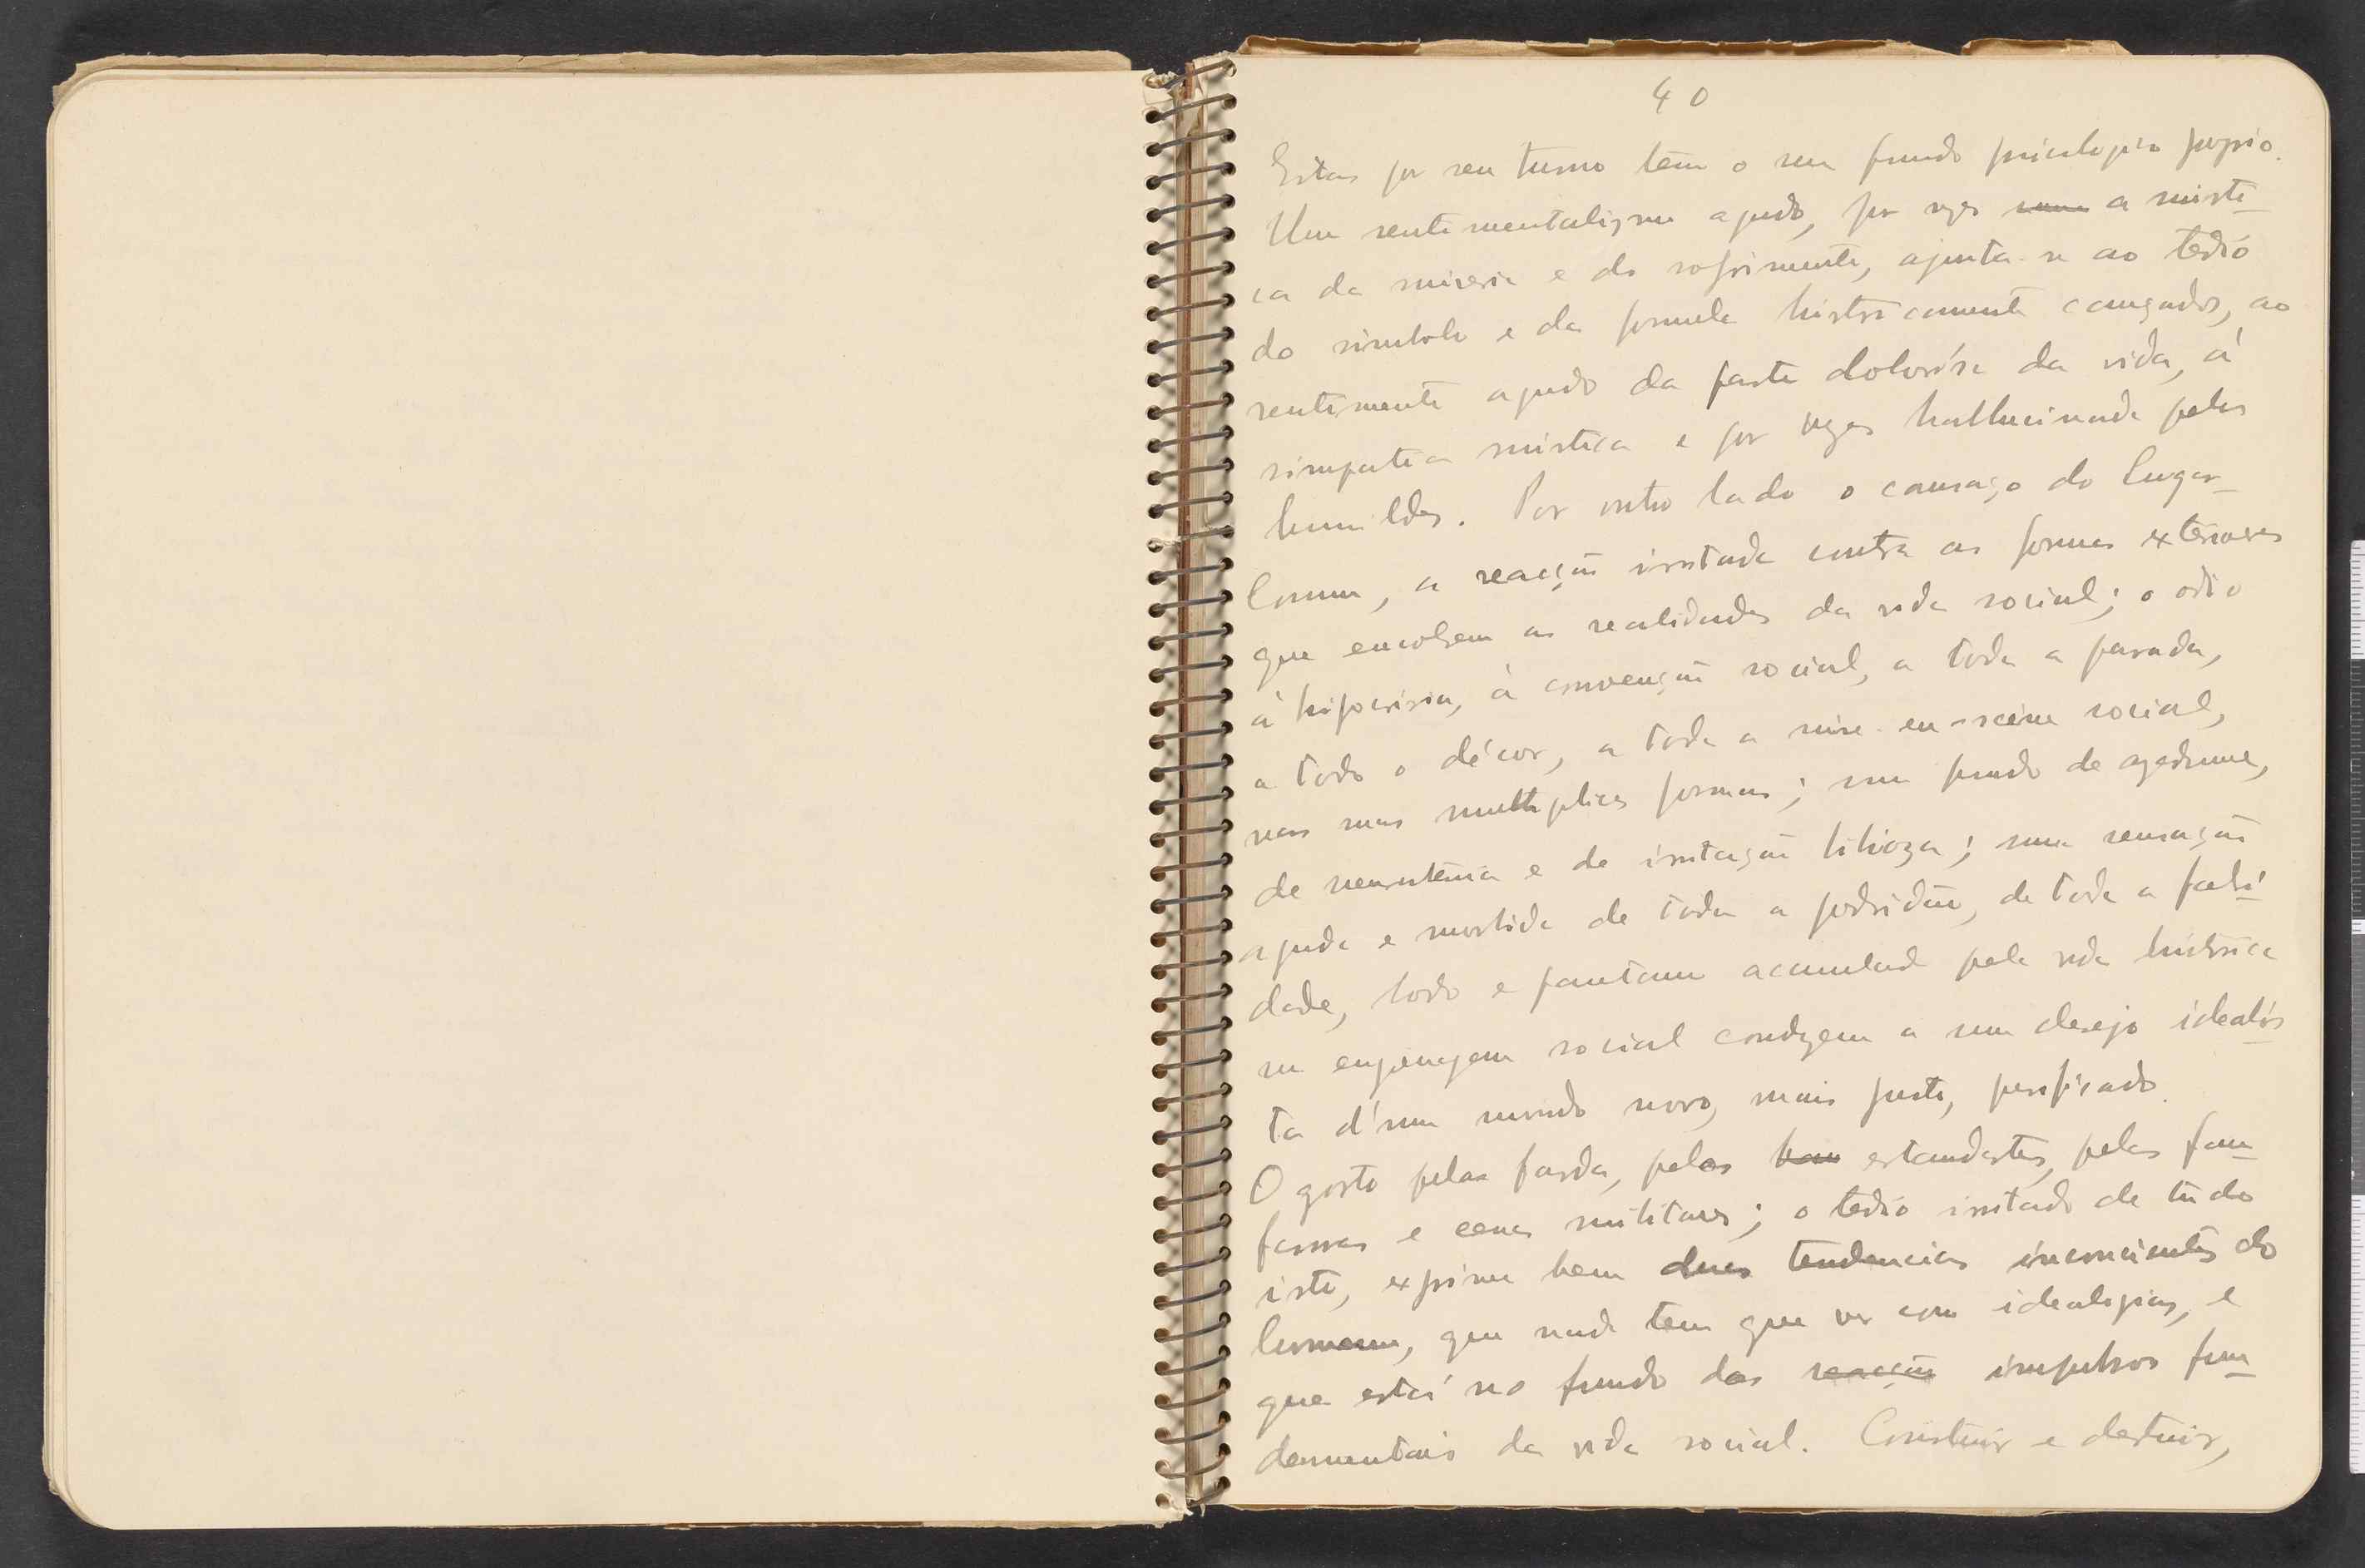 40
Estas por seu turno têm o seu fundo psicologico proprio.
Um sentimentalismo agudo, por vezes a misti-
ca da miseria e do sofrimento, ajunta-se ao tedio
do simbolo e da formula historicamente cansados, ao
sentimento agudo da parte dolorósa da vida, á
simpatia mistica e por vezes hallucinada pelos
humildes. Por outro lado o cansaço do Lugar-
Comum, a reacção irritada contra as formas exteriores
que envolvem as realidades da vida social; o odio
á hipocrisia, á convenção social, a toda a parada,
a todo o décor, a toda a mise-en-scène social,
nas suas multiplices formas; um fundo de azedume,
de neurastenia e de irritação bilioza; uma sensação
aguda e morbida de toda a podridão, de toda a falsi-
dade, lodo e pantano acumulado pela vida histórica
na engrenagem social conduzem a um desejo idealis-
ta d'um mundo novo, mais justo, purificado.
O gosto pelas fardas, pelos estandartes, pelas fan-
farras e cenas militares; o tedio irritado de tudo
isto, exprime bem duas tendencias inconscientes do
homem, que nada tem que ver com idealogias, e
que está no fundo dos reacção impulsos fun-
damentais da vida social. Construir e destruir,